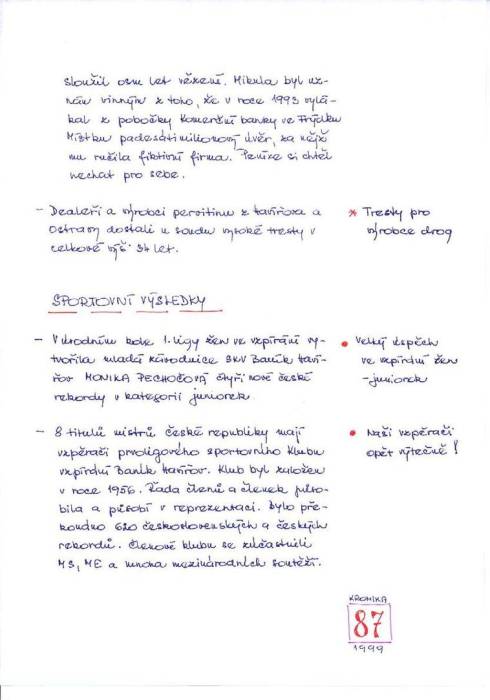 sloužil osm let vězení. Mikula byl uz-
nán vinným z toho, že v roce 1993 vylá-
kal z pobočky Komerční banky ve Frýdku
Místku padesátimilionový úvěr, za nějž
mu ručila fiktivní firma. Peníze si chtěl
nechat pro sebe.
- Dealeři a výrobci pervitinu z Havířova a
Ostravy dostali u soudu vysoké tresty v
celkové výši 34 let.
* Tresty pro
výrobce drog
SPORTOVNÍ VÝSLEDKY
- V úvodním kole 1. ligy žen ve vzpírání vy-
tvořila mladá závodnice SKV Baník Haví-
řov MONIKA PECHOČOVÁ čtyři nové české
rekordy v kategorii juniorek.
• Velký úspěch
ve vzpírání žen
-juniorek
- 8 titulů mistrů České republiky mají
vzpěrači prvoligového sportovního klubu
vzpírání Baník Havířov. Klub byl založen
v roce 1956. Řada členů a členek půso-
bila a působí v reprezentaci. Bylo pře-
konáno 620 československých a českých
rekordů. Členové klubu se zúčastnili
MS, ME a mnoha mezinárodních soutěží.
• Naši vzpěrači
opět výteční!
KRONIKA
87
1999